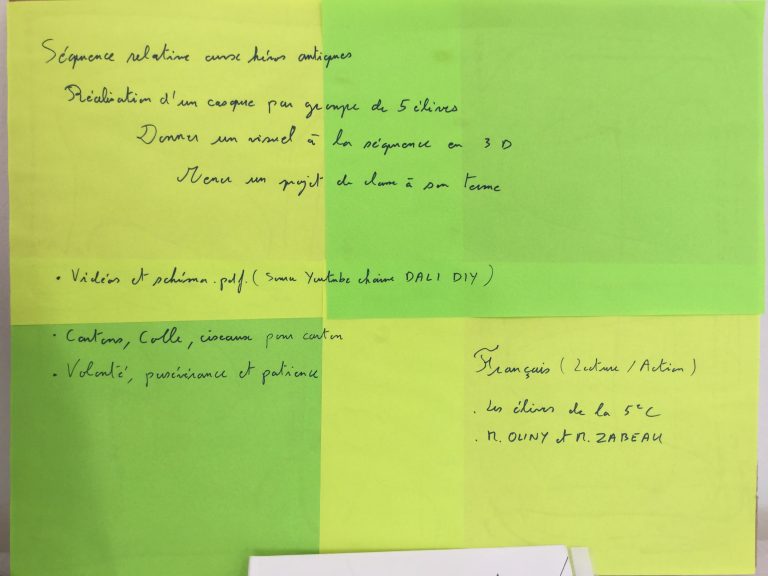 Séquence relative aux héros antiques
Réalisation d'un casque par groupe de 5 élèves
Donner un visuel à la séquence en 3D
Mener un projet de classe à son terme
• Vidéos et schéma.pdf. ( Youtube chaîne DALI DIY )
• Cartons, Colle, ciseaux pour carton
• Volonté, persévérance et patience
Français ( Lecture / Action )
. Les élèves de la 5e C
. M. OLINY et M. ZABEAU